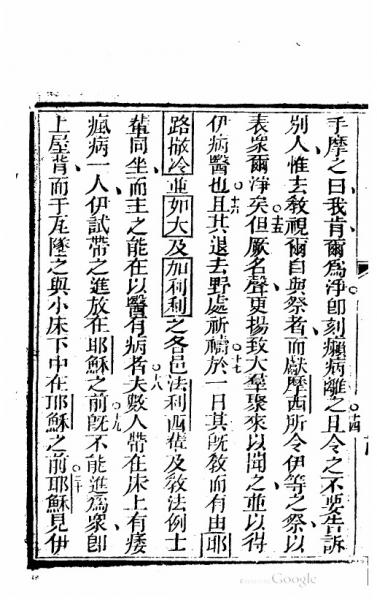 手摩之曰我肯爾爲淨卽刻癩病離之且令之不要告訴
別人惟去敎視爾自與祭者而獻摩西所令伊等之祭以
表衆爾淨矣但厥名聲更揚致大羣聚來以聞之並以得
伊病醫也且其退去野處祈禱於一日其旣敎而有由耶
路撒冷並如大及加利利之各邑法利西輩及敎法例士
輩同坐而主之能在以醫有病者夫數人帶在床上有痿
瘋病一人伊試帶之進放在耶穌之前旣不能進爲衆卽
上屋背而于瓦墜之與小床下中在耶穌之前耶穌見伊
Google